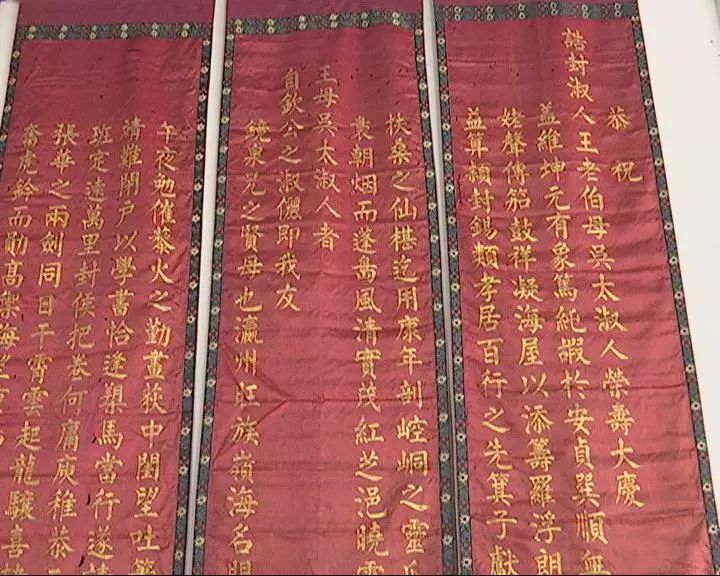 恭祝
誥封淑人王老伯母吳太淑人榮壽大慶
蓋維坤元有象篤純嘏於安貞巽順無
姓聲傅笳鼓祥凝海屋以添籌羅浮朗
益算頻封錫類孝居百行之先箕子獻
扶桑之仙椹迄用康年剖崆峒之靈
裛朝烟而蓬島風清實茂紅芝浥曉
王母吳太淑人者
自欽公之淑儷即我友
鏡泉兄之賢母也瀛州旺族嶺海名
午夜勉催藜火之勤畫荻中閨望吐
靖難閉戶以學書恰逢槊馬當行遂
班定遠萬里封侯把卷何腐庾稚恭
張華之兩劍同日干霄雲起龍驤喜
奮虎鈴而勛高架海